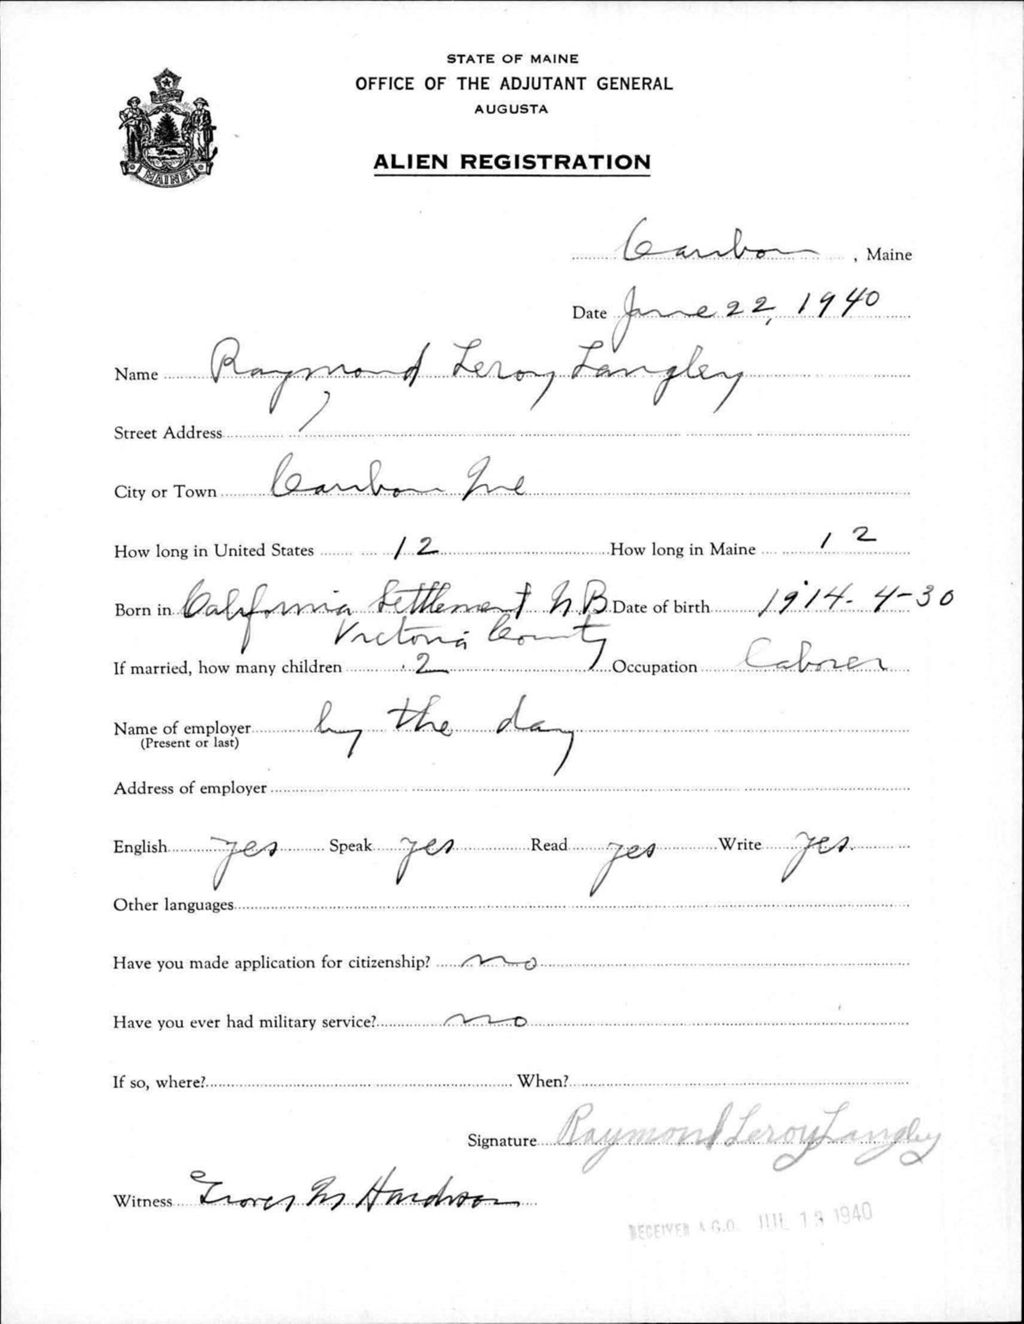 STATE OF MAINE
OFFICE OF THE ADJUTANT GENERAL
AUGUSTA
MAINE
ALIEN REGISTRATION
Caribou, Maine
Date June 22, 1940
Name Raymond Leroy Langley
Street Address
City or Town Caribou Me
How long in United States 12 How long in Maine 12
Born in California Settlement N B Date of birth 1914-4-30
Victoria County
If married, how many children 2 Occupation Laborer
Name of employer by the day
(Present or last)
Address of employer
English yes Speak yes Read yes Write yes.
Other languages
Have you made application for citizenship? no
Have you ever had military service? no
If so, where? When?
Signature Raymond Leroy Langley
Witness Grover M Hardison
RECEIVED A.G.O. JUL 13 1940